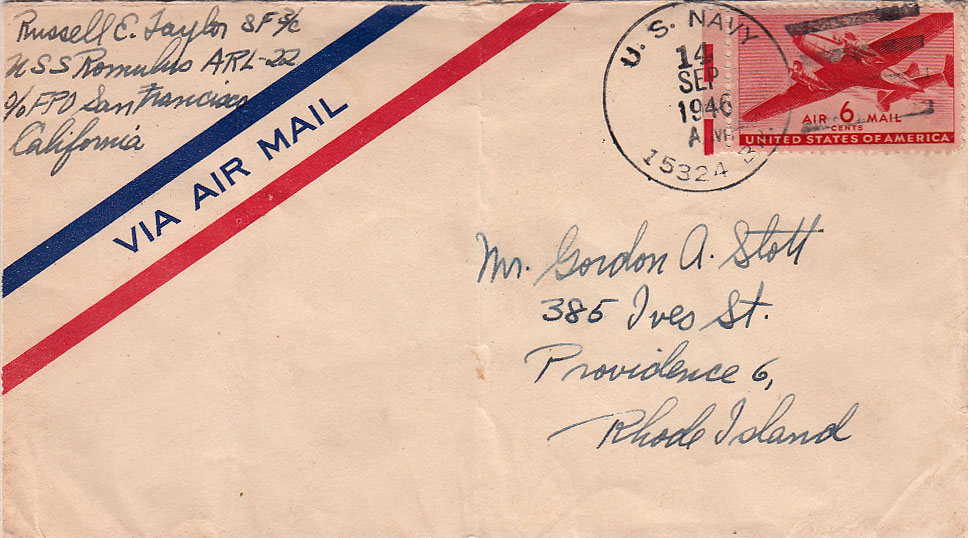 Russell E. Taylor SF 3/c
USS Romulus ARL-22
c/o FPO San Francisco
California
VIA AIR MAIL
U. S. NAVY
14
SEP
1946
A.M.
15324 BR.
AIR 6 MAIL
CENTS
UNITED STATES OF AMERICA
Mr. Gordon A. Stott
385 Ives St.
Providence 6,
Rhode Island